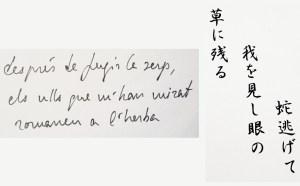 després de fugir la serp,
els ulls que m'han mirat
romanen a l'herba
蛇逃げて
我を見し眼の
草に残る